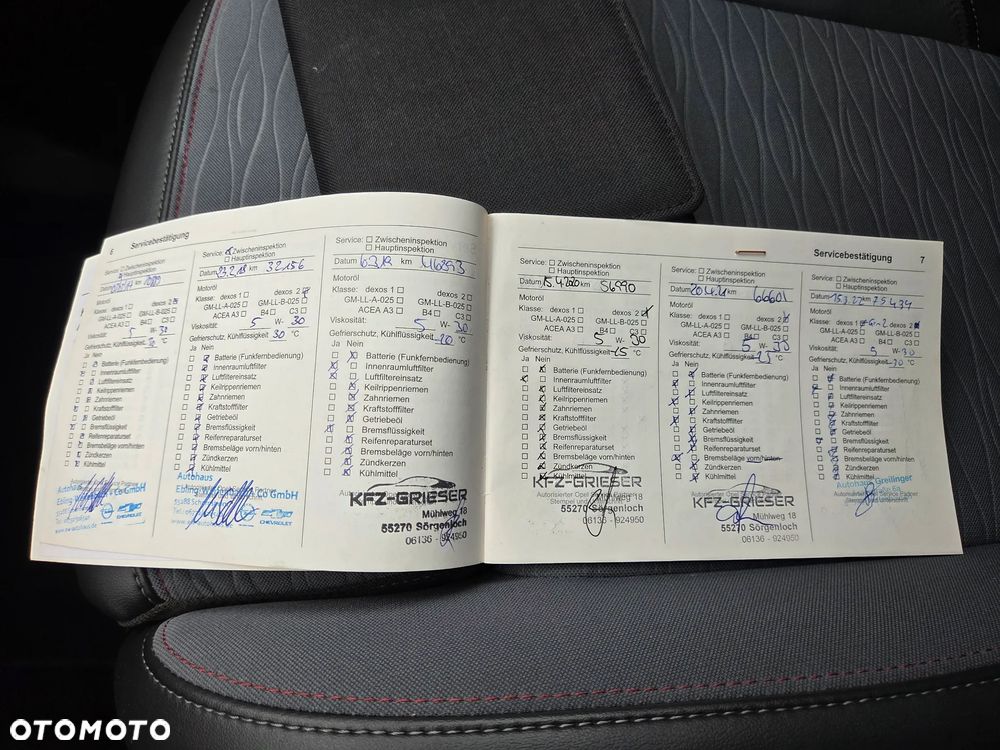 6 Servicebestätigung
Service: ☐ Zwischeninspektion
☐ Hauptinspektion
Datum km
Motoröl
Klasse: dexos 1 ☐ dexos 2
GM-LL-A-025 ☐ GM-LL-B-025 ☐
ACEA A3 ☐ B4 ☐ C3 ☐
Viskosität: 5 W- 30
Gefrierschutz, Kühlflüssigkeit °C
Ja Nein
Batterie (Funkfernbedienung)
Innenraumluftfilter
Luftfiltereinsatz
Keilrippenriemen
Zahnriemen
Kraftstofffilter
Getriebeöl
Bremsflüssigkeit
Reifenreparaturset
Bremsbeläge vorn/hinten
Zündkerzen
Kühlmittel
Autohaus
Co GmbH
CHEVROLET
Service: Zwischeninspektion
☐ Hauptinspektion
Datum 23.2.18 km 32156
Motoröl
Klasse: dexos 1 ☐ dexos 2
GM-LL-A-025 ☐ GM-LL-B-025 ☐
ACEA A3 ☐ B4 ☐ C3 ☐
Viskosität: 5 W- 30
Gefrierschutz, Kühlflüssigkeit 30 °C
Ja Nein
Batterie (Funkfernbedienung)
Innenraumluftfilter
Luftfiltereinsatz
Keilrippenriemen
Zahnriemen
Kraftstofffilter
Getriebeöl
Bremsflüssigkeit
Reifenreparaturset
Bremsbeläge vorn/hinten
Zündkerzen
Kühlmittel
Autohaus
Co GmbH
CHEVROLET
Service: ☐ Zwischeninspektion
☐ Hauptinspektion
Datum 6.3.19 km 46893
Motoröl
Klasse: dexos 1 ☐ dexos 2 ☐
GM-LL-A-025 ☐ GM-LL-B-025 ☐
ACEA A3 ☐ B4 ☐ C3 ☐
Viskosität: 5 W- 30
Gefrierschutz, Kühlflüssigkeit -20 °C
Ja Nein
Batterie (Funkfernbedienung)
Innenraumluftfilter
Luftfiltereinsatz
Keilrippenriemen
Zahnriemen
Kraftstofffilter
Getriebeöl
Bremsflüssigkeit
Reifenreparaturset
Bremsbeläge vorn/hinten
Zündkerzen
Kühlmittel
KFZ-GRIESER
Mühlweg 18
55270 Sörgenloch
06136 - 924950
Servicebestätigung 7
Service: ☐ Zwischeninspektion
☐ Hauptinspektion
Datum 15.4.2020 km 56990
Motoröl
Klasse: dexos 1 ☐ dexos 2
GM-LL-A-025 ☐ GM-LL-B-025 ☐
ACEA A3 ☐ B4 ☐ C3 ☐
Viskosität: 5 W- 30
Gefrierschutz, Kühlflüssigkeit -25 °C
Ja Nein
Batterie (Funkfernbedienung)
Innenraumluftfilter
Luftfiltereinsatz
Keilrippenriemen
Zahnriemen
Kraftstofffilter
Getriebeöl
Bremsflüssigkeit
Reifenreparaturset
Bremsbeläge vorn/hinten
Zündkerzen
Kühlmittel
KFZ-GRIESER
Autorisierter Opel
Mühlweg 18
55270 Sörgenloch
06136 - 924950
Service: ☐ Zwischeninspektion
☐ Hauptinspektion
Datum 20.4.21 km 66601
Motoröl
Klasse: dexos 1 ☐ dexos 2
GM-LL-A-025 ☐ GM-LL-B-025 ☐
ACEA A3 ☐ B4 ☐ C3 ☐
Viskosität: 5 W- 30
Gefrierschutz, Kühlflüssigkeit -25 °C
Ja Nein
Batterie (Funkfernbedienung)
Innenraumluftfilter
Luftfiltereinsatz
Keilrippenriemen
Zahnriemen
Kraftstofffilter
Getriebeöl
Bremsflüssigkeit
Reifenreparaturset
Bremsbeläge vorn/hinten
Zündkerzen
Kühlmittel
KFZ-GRIESER
Mühlweg 18
55270 Sörgenloch
06136 - 924950
Service: ☐ Zwischeninspektion
☐ Hauptinspektion
Datum 15.3.22 km 75434
Motoröl
Klasse: dexos 1 dexos 2
GM-LL-A-025 ☐ GM-LL-B-025 ☐
ACEA A3 ☐ B4 ☐ C3 ☐
Viskosität: 5 W- 30
Gefrierschutz, Kühlflüssigkeit °C
Ja Nein
Batterie (Funkfernbedienung)
Innenraumluftfilter
Luftfiltereinsatz
Keilrippenriemen
Zahnriemen
Kraftstofffilter
Getriebeöl
Bremsflüssigkeit
Reifenreparaturset
Bremsbeläge vorn/hinten
Zündkerzen
Kühlmittel
Autohaus Greilinger
OTOMOTO